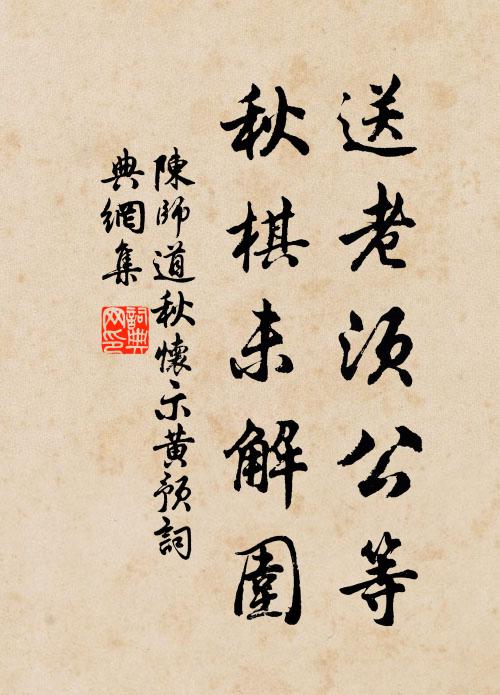 送老须公等
秋棋未解圍
陳師道秋懷示黄預詞
典網集
詞典网印